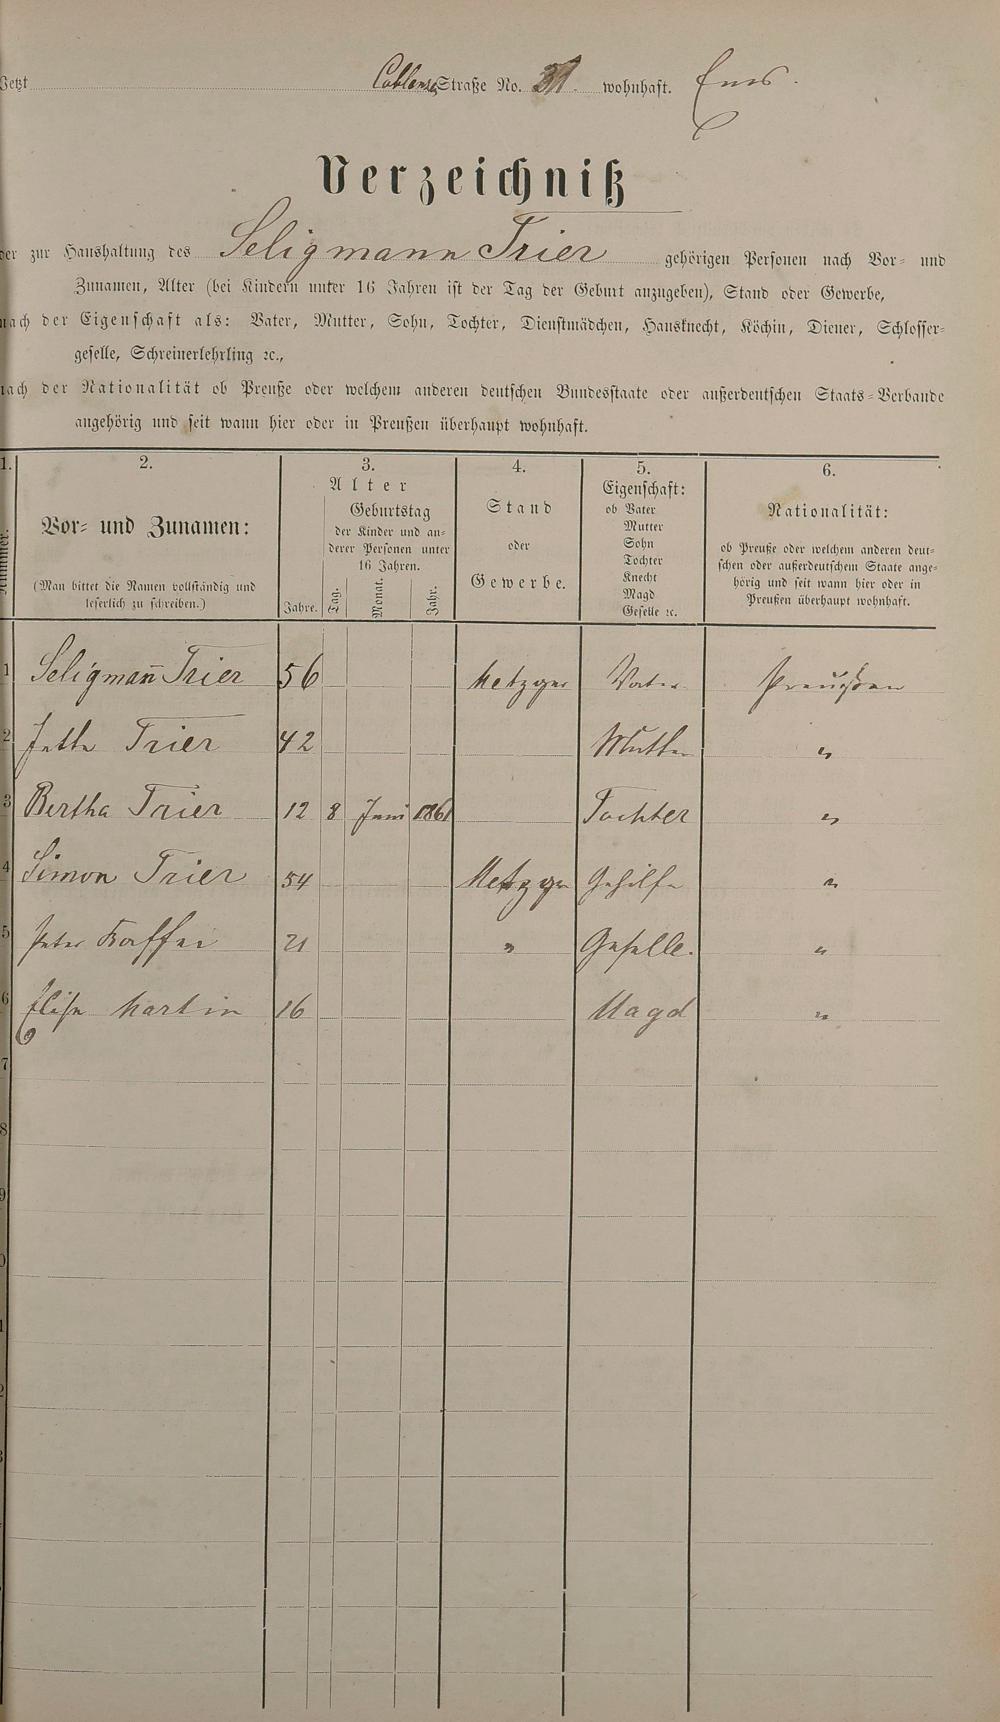 Jetzt Coblenz Straße No. 31. wohnhaft. Ems.
Verzeichniß
der zur Haushaltung des Seligmann Trier gehörigen Personen nach Vor- und
Zunamen, Alter (bei Kindern unter 16 Jahren ist der Tag der Geburt anzugeben), Stand oder Gewerbe,
nach der Eigenschaft als: Vater, Mutter, Sohn, Tochter, Dienstmädchen, Hausknecht, Köchin, Diener, Schlosser-
geselle, Schreinerlehrling ꝛc.,
nach der Nationalität ob Preuße oder welchem anderen deutschen Bundesstaate oder außerdeutschen Staats-Verbande
angehörig und seit wann hier oder in Preußen überhaupt wohnhaft.
1. 2. 3. 4. 5. 6.
Nummer.
Vor- und Zunamen:
(Man bittet die Namen vollständig und
leserlich zu schreiben.)
Alter
Jahre.
Geburtstag
der Kinder und an-
derer Personen unter
16 Jahren.
Tag. Monat. Jahr.
Stand
oder
Gewerbe.
Eigenschaft:
ob Vater
Mutter
Sohn
Tochter
Knecht
Magd
Geselle ꝛc.
Nationalität:
ob Preuße oder welchem anderen deut-
schen oder außerdeutschem Staate ange-
hörig und seit wann hier oder in
Preußen überhaupt wohnhaft.
1 Seligman̄ Trier 56 Metzger Vater Preußen
2 Jette Trier 42 Mutter "
3 Bertha Trier 12 8 Juni 1861 Tochter "
4 Simon Trier 54 Metzger Gehilfe "
5 Peter 21 " Geselle. "
6 Elise Martin 16 Magd "
7
8
9
0
1
2
3